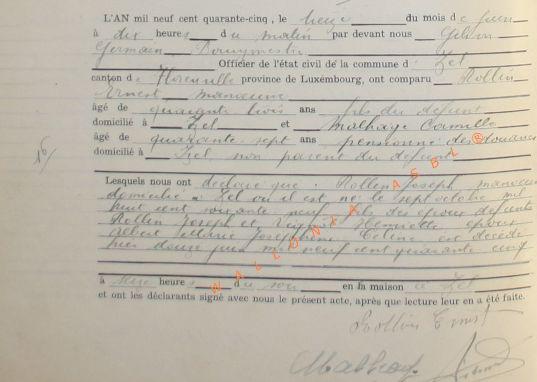 L'AN mil neuf cent quarante-cinq, le treize du mois de juin
à dix heures du matin par devant nous
Germain
Officier de l'état civil de la commune d
canton de Florenville province de Luxembourg, ont comparu Rollin
Ernest manœuvre
âgé de quarante trois ans fils du défunt
domicilié à et Malhaye Camille
âgé de quarante sept ans pensionné des douanes
domicilié à non parent du défunt
16/
Lesquels nous ont déclaré que Rollin Joseph
domicilié où il est né le sept octobre mil
huit cent soixante neuf fils des époux défunts
Rollin Joseph et Henriette époux
Albert Marie Joséphine Céline est décédé
hier douze juin mil neuf cent quarante cinq
à heures du soir en sa maison à
et ont les déclarants signé avec nous le présent acte, après que lecture leur en a été faite.
Rollin Ernest
Malhaye
WALLONIA ASBL ®